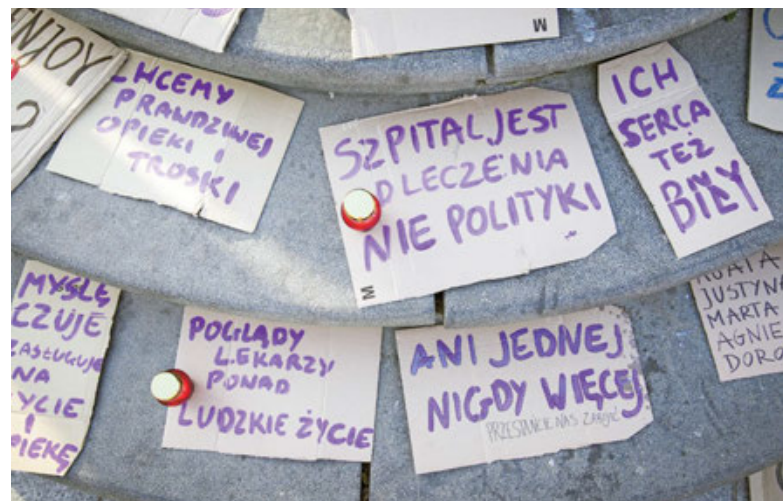 NJOY
?
CHCEMY
PRAWDZIWEJ
OPIEKI I
TROSKI
SZPITAL JEST
D LECZENIA
NIE POLITYKI
M
ICH
SERCA
TEŻ
BIŁY
M
MYŚLĘ
CZUJĘ
ZASŁUGUJĘ
NA
YCIE
I
PIEKĘ
POGLĄDY
LEKARZY
PONAD
LUDZKIE ŻYCIE
ANI JEDNEJ
NIGDY WIĘCEJ
PRZESTAŃCIE NAS ZABIJAĆ
M
AGATA
JUSTYNA
MARTA
AGNIE
DORO